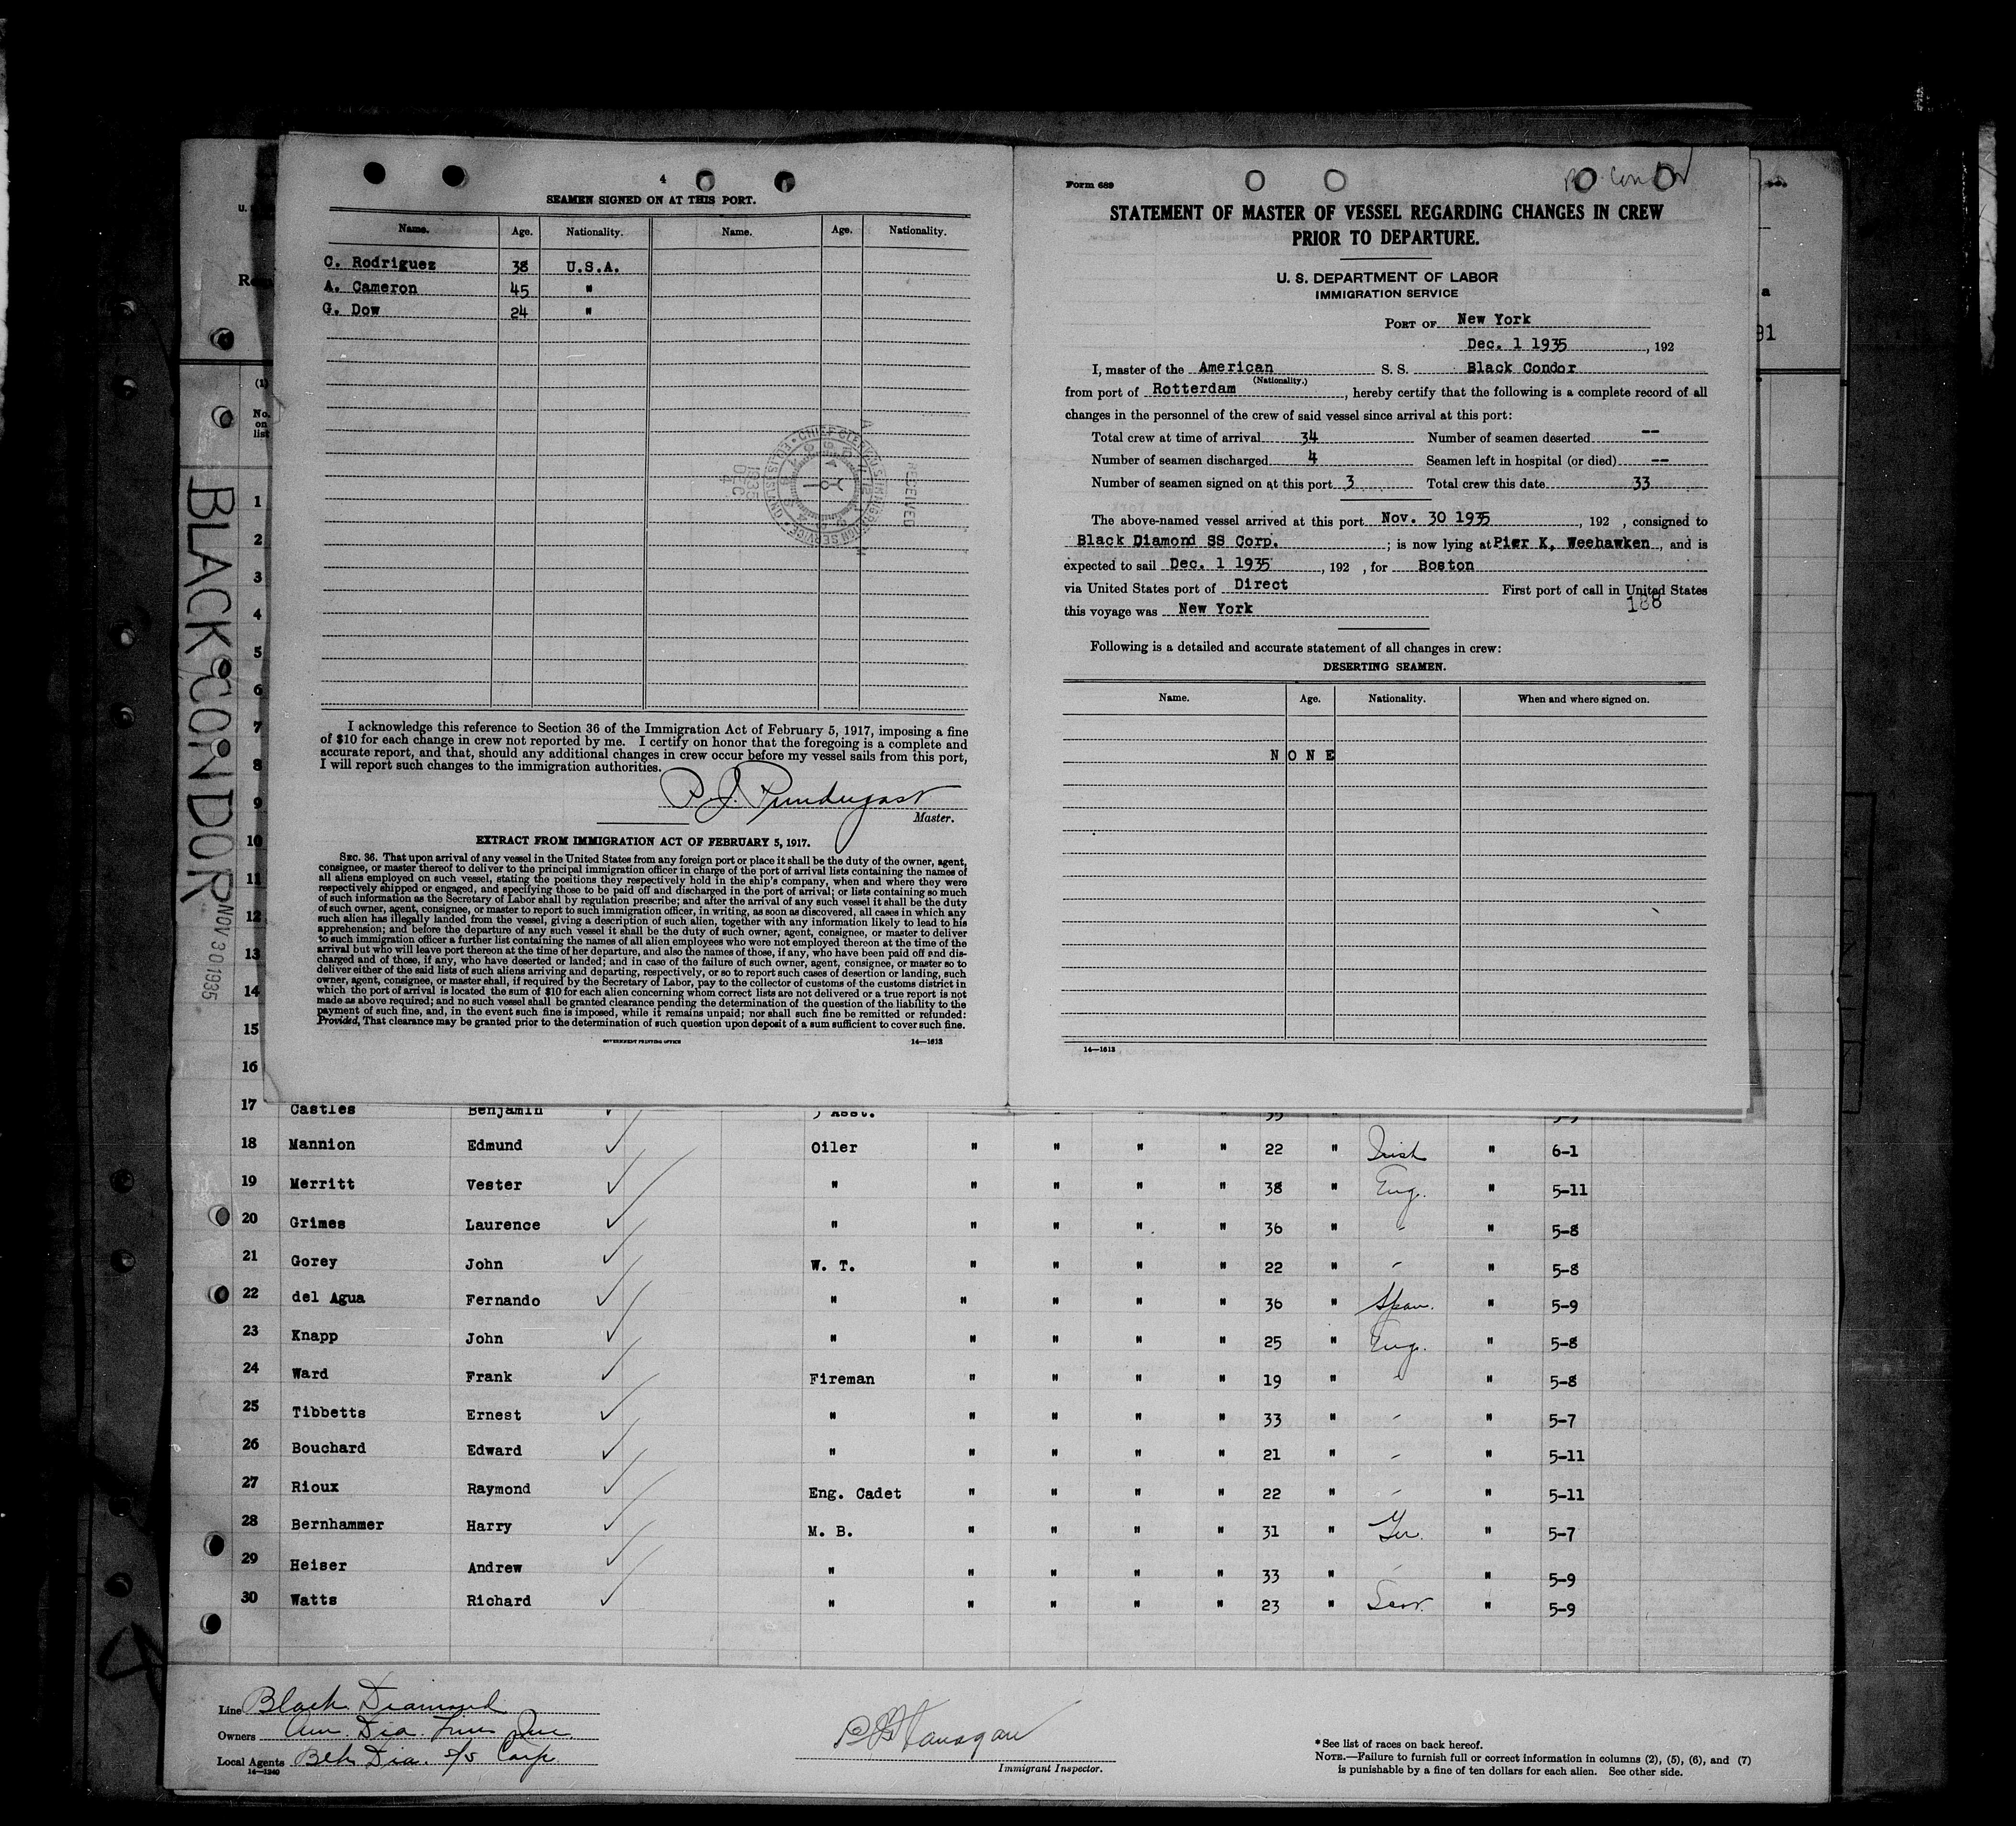 4
SEAMEN SIGNED ON AT THIS PORT.
Name. Age. Nationality. Name. Age. Nationality.
C. Rodriguez 38 U.S.A.
A. Cameron 45 "
G. Dow 24 "
RECEIVED
1935 DEC 4
I acknowledge this reference to Section 36 of the Immigration Act of February 5, 1917, imposing a fine
of $10 for each change in crew not reported by me. I certify on honor that the foregoing is a complete and
accurate report, and that, should any additional changes in crew occur before my vessel sails from this port,
I will report such changes to the immigration authorities.
Master.
EXTRACT FROM IMMIGRATION ACT OF FEBRUARY 5, 1917.
SEC. 36. That upon arrival of any vessel in the United States from any foreign port or place it shall be the duty of the owner, agent,
consignee, or master thereof to deliver to the principal immigration officer in charge of the port of arrival lists containing the names of
all aliens employed on such vessel, stating the positions they respectively hold in the ship's company, when and where they were
respectively shipped or engaged, and specifying those to be paid off and discharged in the port of arrival; or lists containing so much
of such information as the Secretary of Labor shall by regulation prescribe; and after the arrival of any such vessel it shall be the duty
of such owner, agent, consignee, or master to report to such immigration officer, in writing, as soon as discovered, all cases in which any
such alien has illegally landed from the vessel, giving a description of such alien, together with any information likely to lead to his
apprehension; and before the departure of any such vessel it shall be the duty of such owner, agent, consignee, or master to deliver
to such immigration officer a further list containing the names of all alien employees who were not employed thereon at the time of the
arrival but who will leave port thereon at the time of her departure, and also the names of those, if any, who have been paid off and dis-
charged and of those, if any, who have deserted or landed; and in case of the failure of such owner, agent, consignee, or master so to
deliver either of the said lists of such aliens arriving and departing, respectively, or so to report such cases of desertion or landing, such
owner, agent, consignee, or master shall, if required by the Secretary of Labor, pay to the collector of customs of the customs district in
which the port of arrival is located the sum of $10 for each alien concerning whom correct lists are not delivered or a true report is not
made as above required; and no such vessel shall be granted clearance pending the determination of the question of the liability to the
payment of such fine, and, in the event such fine is imposed, while it remains unpaid; nor shall such fine be remitted or refunded:
Provided, That clearance may be granted prior to the determination of such question upon deposit of a sum sufficient to cover such fine.
GOVERNMENT PRINTING OFFICE 14—1613
Form 689
STATEMENT OF MASTER OF VESSEL REGARDING CHANGES IN CREW
PRIOR TO DEPARTURE.
U. S. DEPARTMENT OF LABOR
IMMIGRATION SERVICE
PORT OF New York
Dec. 1 1935, 192
I, master of the American S. S. Black Condor
(Nationality.)
from port of Rotterdam, hereby certify that the following is a complete record of all
changes in the personnel of the crew of said vessel since arrival at this port:
Total crew at time of arrival 34 Number of seamen deserted --
Number of seamen discharged 4 Seamen left in hospital (or died) --
Number of seamen signed on at this port 3 Total crew this date 33
The above-named vessel arrived at this port Nov. 30 1935, 192 , consigned to
Black Diamond SS Corp. ; is now lying at Pier K, Weehawken, and is
expected to sail Dec. 1 1935, 192 , for Boston
via United States port of Direct First port of call in United States
this voyage was New York 188
Following is a detailed and accurate statement of all changes in crew:
DESERTING SEAMEN.
Name. Age. Nationality. When and where signed on.
NONE
14—1613
BLACK CONDOR
NOV 30 1935
(1)
No. on list
1
2
3
4
5
6
7
8
9
10
11
12
13
14
15
16
17 Castles Benjamin Asst.
18 Mannion Edmund Oiler " " " " 22 " Irish " 6-1
19 Merritt Vester " " " " " 38 " Eng. " 5-11
20 Grimes Laurence " " " " " 36 " " " 5-8
21 Gorey John W. T. " " " " 22 " " " 5-8
22 del Agua Fernando " " " " " 36 " Span. " 5-9
23 Knapp John " " " " " 25 " Eng. " 5-8
24 Ward Frank Fireman " " " " 19 " " " 5-8
25 Tibbetts Ernest " " " " " 33 " " " 5-7
26 Bouchard Edward " " " " " 21 " " " 5-11
27 Rioux Raymond Eng. Cadet " " " " 22 " " " 5-11
28 Bernhammer Harry M. B. " " " " 31 " Ger. " 5-7
29 Heiser Andrew " " " " " 33 " " " 5-9
30 Watts Richard " " " " " 23 " Scot. " 5-9
Line Black Diamond
Owners Am. Dia. Lines Inc.
Local Agents Blk Dia. s/s Corp.
14—1240
Immigrant Inspector.
* See list of races on back hereof.
NOTE.—Failure to furnish full or correct information in columns (2), (5), (6), and (7)
is punishable by a fine of ten dollars for each alien. See other side.